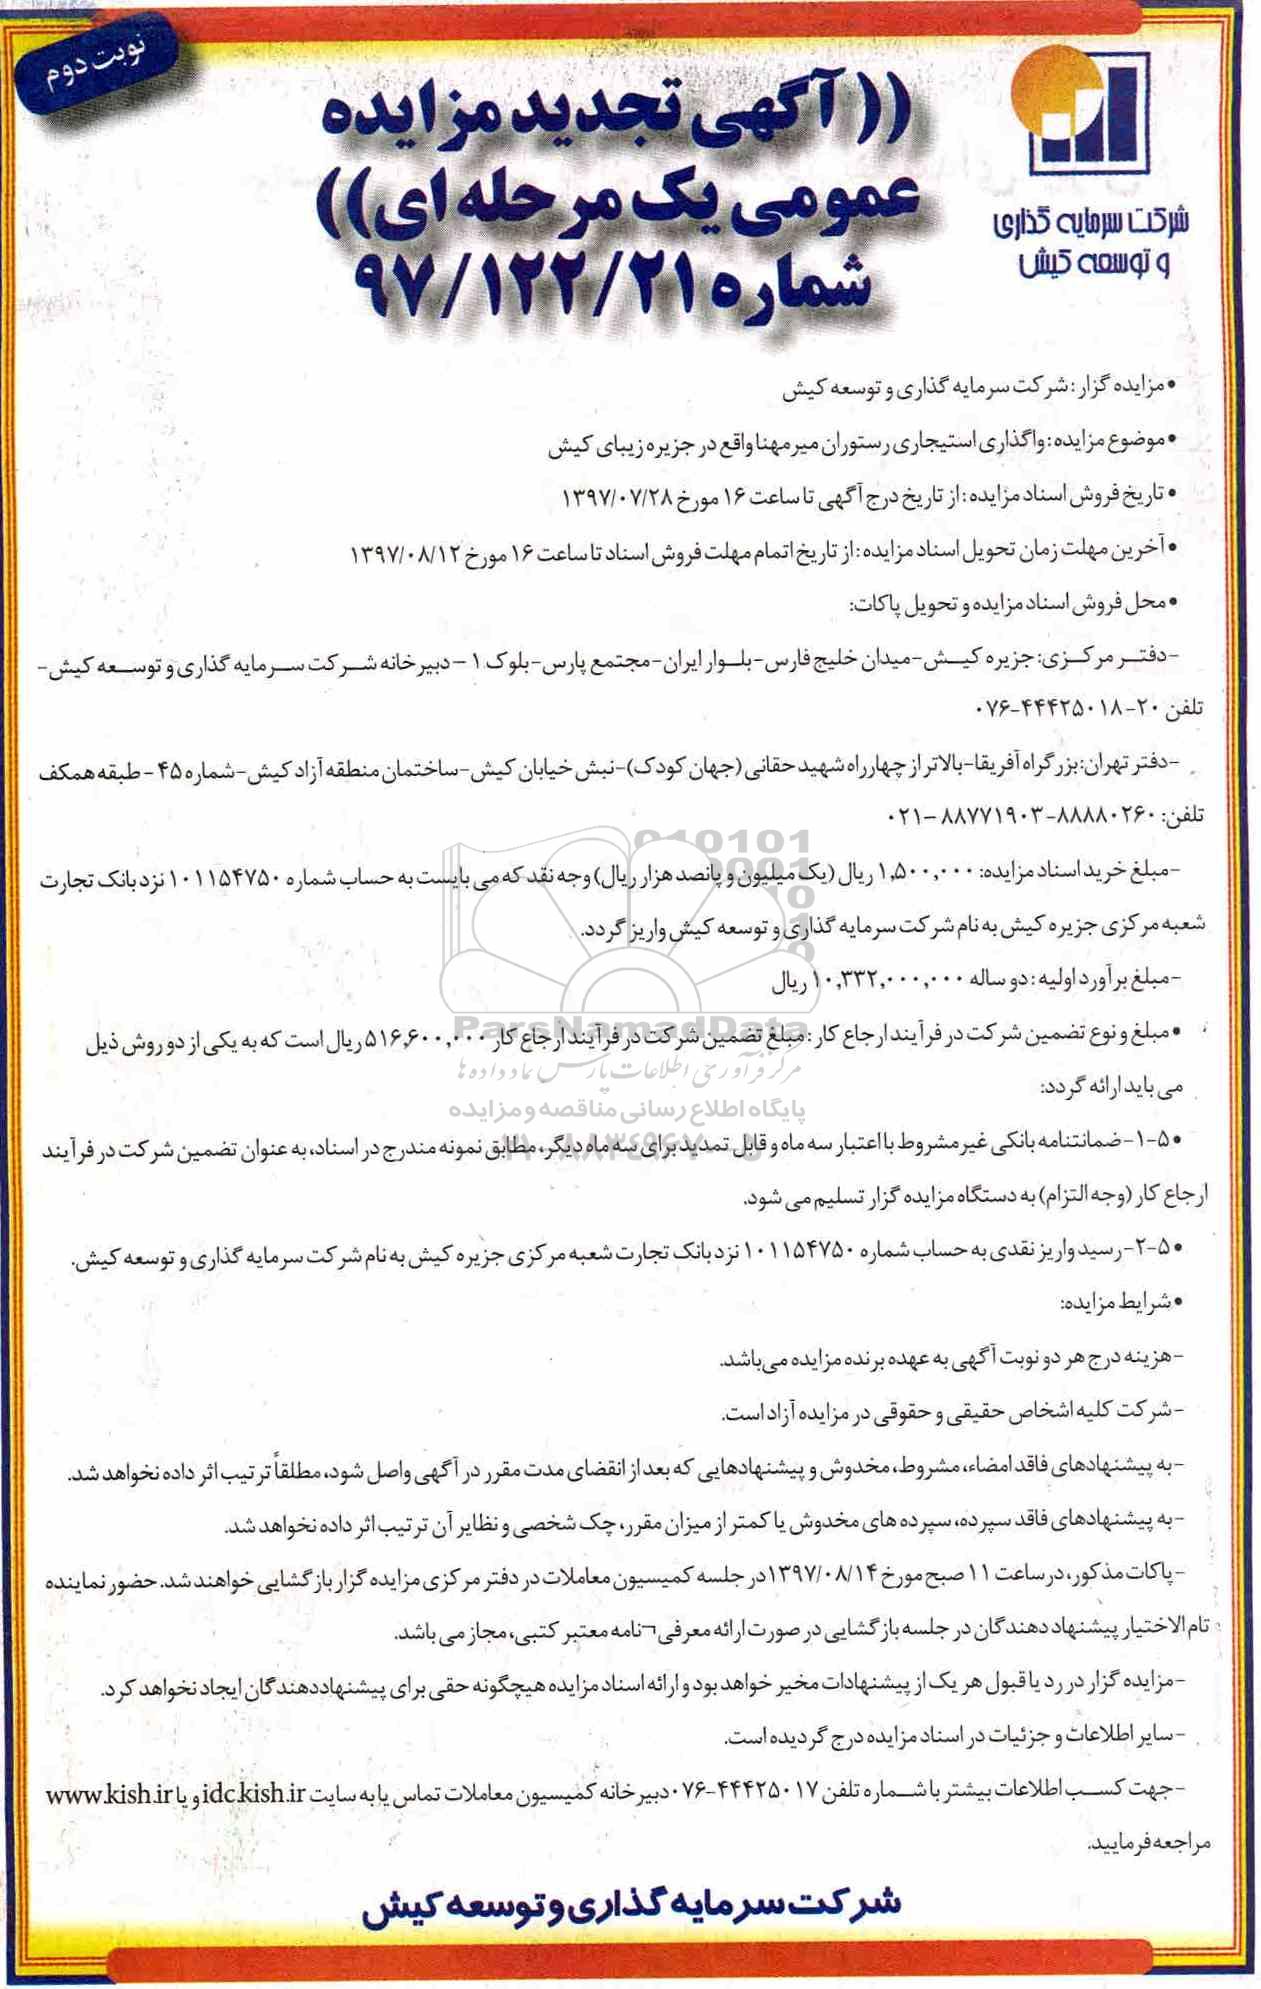 نوبت دوم
((آگهی تجدید مزایده
عمومی یک مرحله ای))
شماره ۹۷/۱۲۲/۲۱
شرکت سرمایه گذاری
و توسعه کیش
•مزایده گزار: شرکت سرمایه گذاری و توسعه کیش
•موضوع مزایده: واگذاری استیجاری رستوران میرمهنا واقع در جزیره زیبای کیش
•تاریخ فروش اسناد مزایده: از تاریخ درج آگهی تا ساعت ۱۶ مورخ ۱۳۹۷/۰۷/۲۸
•آخرین مهلت زمان تحویل اسناد مزایده: از تاریخ اتمام مهلت فروش اسناد تا ساعت ۱۶ مورخ ۱۳۹۷/۰۸/۱۲
•محل فروش اسناد مزایده و تحویل پاکات:
-دفتر مرکزی: جزیره کیش-میدان خلیج فارس-بلوار ایران-مجتمع پارس-بلوک ۱ -دبیرخانه شرکت سرمایه گذاری و توسعه کیش-
تلفن ۲۰-۰۷۶-۴۴۴۲۵۰۱۸
-دفتر تهران: بزرگراه آفریقا-بالاتر از چهارراه شهید حقانی (جهان کودک)-نبش خیابان کیش-ساختمان منطقه آزاد کیش-شماره ۴۵- طبقه همکف
تلفن: ۸۸۸۸۰۲۶۰-۸۸۷۷۱۹۰۳-۰۲۱
-مبلغ خرید اسناد مزایده: ۱,۵۰۰,۰۰۰ ریال (یک میلیون و پانصد هزار ریال) وجه نقد که می بایست به حساب شماره ۱۰۱۱۵۴۷۵۰ نزد بانک تجارت
شعبه مرکزی جزیره کیش به نام شرکت سرمایه گذاری و توسعه کیش واریز گردد.
-مبلغ برآورد اولیه: دو ساله ۱۰,۳۳۲,۰۰۰,۰۰۰ ریال
•مبلغ و نوع تضمین شرکت در فرآیند ارجاع کار: مبلغ تضمین شرکت در فرآیند ارجاع کار ۵۱۶,۶۰۰,۰۰۰ ریال است که به یکی از دو روش ذیل
می باید ارائه گردد:
•۵-۱-ضمانتنامه بانکی غیر مشروط با اعتبار سه ماه و قابل تمدید برای سه ماه دیگر، مطابق نمونه مندرج در اسناد، به عنوان تضمین شرکت در فرآیند
ارجاع کار (وجه التزام) به دستگاه مزایده گزار تسلیم می شود.
•۵-۲-رسید واریز نقدی به حساب شماره ۱۰۱۱۵۴۷۵۰ نزد بانک تجارت شعبه مرکزی جزیره کیش به نام شرکت سرمایه گذاری و توسعه کیش.
•شرایط مزایده:
-هزینه درج هر دو نوبت آگهی به عهده برنده مزایده می‌باشد.
-شرکت کلیه اشخاص حقیقی و حقوقی در مزایده آزاد است.
-به پیشنهادهای فاقد امضاء، مشروط، مخدوش و پیشنهادهایی که بعد از انقضای مدت مقرر در آگهی واصل شود، مطلقاً ترتیب اثر داده نخواهد شد.
-به پیشنهادهای فاقد سپرده، سپرده های مخدوش یا کمتر از میزان مقرر، چک شخصی و نظایر آن ترتیب اثر داده نخواهد شد.
-پاکات مذکور، در ساعت ۱۱ صبح مورخ ۱۳۹۷/۰۸/۱۴ در جلسه کمیسیون معاملات در دفتر مرکزی مزایده گزار بازگشایی خواهند شد. حضور نماینده
تام الاختیار پیشنهاد دهندگان در جلسه بازگشایی در صورت ارائه معرفی¬نامه معتبر کتبی، مجاز می باشد.
-مزایده گزار در رد یا قبول هر یک از پیشنهادات مخیر خواهد بود و ارائه اسناد مزایده هیچگونه حقی برای پیشنهاددهندگان ایجاد نخواهد کرد.
-سایر اطلاعات و جزئیات در اسناد مزایده درج گردیده است.
-جهت کسب اطلاعات بیشتر با شماره تلفن ۰۷۶-۴۴۴۲۵۰۱۷ دبیرخانه کمیسیون معاملات تماس یا به سایت idc.kish.ir و یا www.kish.ir
مراجعه فرمایید.
شرکت سرمایه گذاری و توسعه کیش
ParsNamadData
مرکز فرآوری اطلاعات پارس نماد داده ها
پایگاه اطلاع رسانی مناقصه و مزایده